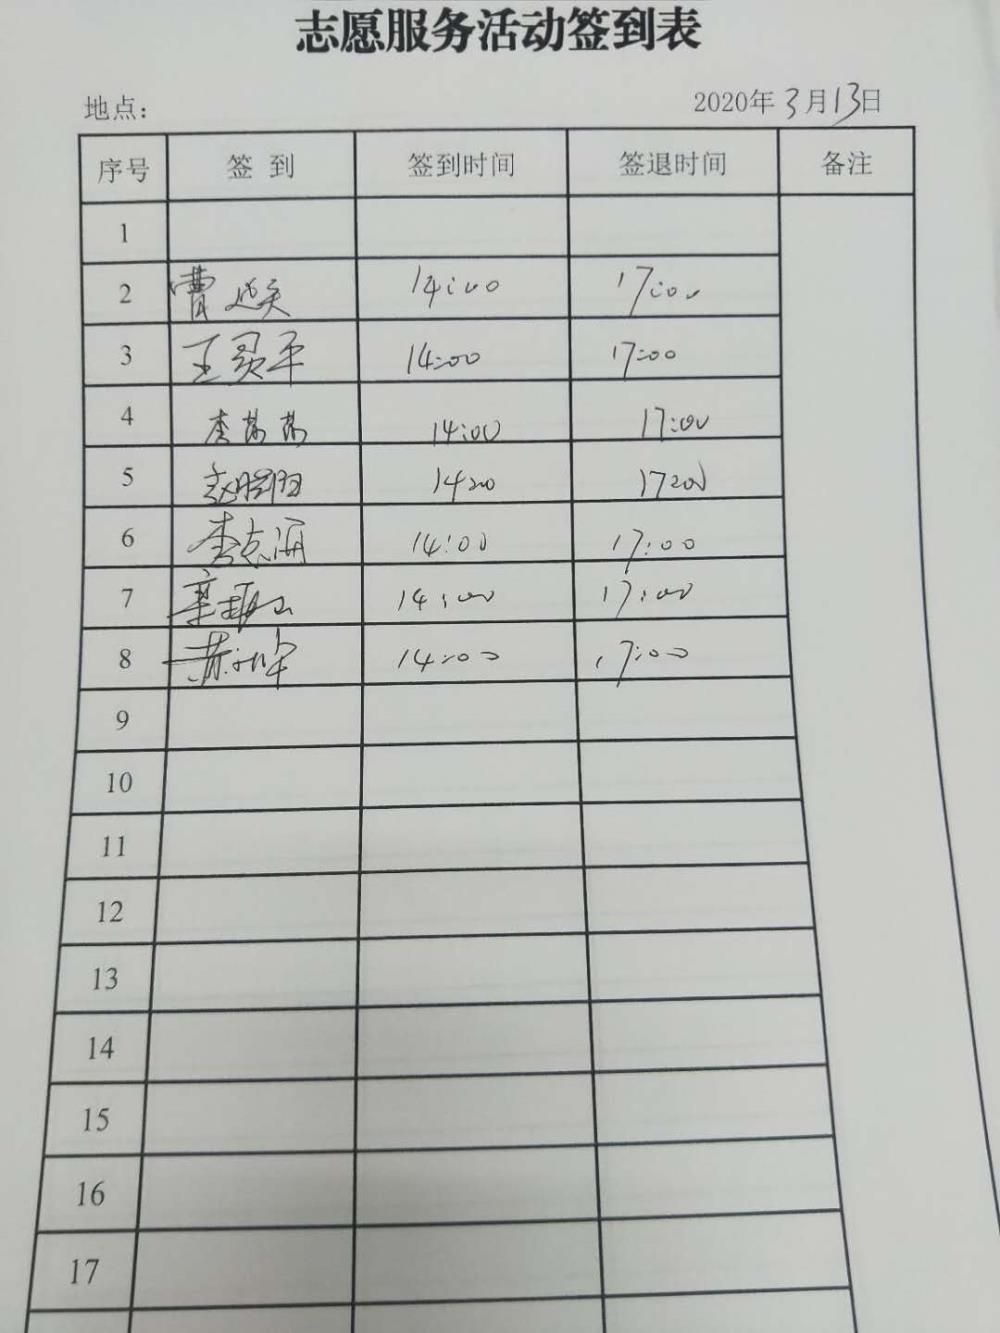 志愿服务活动签到表
地点： 2020年3月13日
序号 签到 签到时间 签退时间 备注
1
2 曹 14:00 17:00
3 王灵平 14:00 17:00
4 李 14:00 17:00
5 赵晓阳 1420 1720
6 李志海 14:00 17:00
7 14:00 17:00
8 14:00 17:00
9
10
11
12
13
14
15
16
17